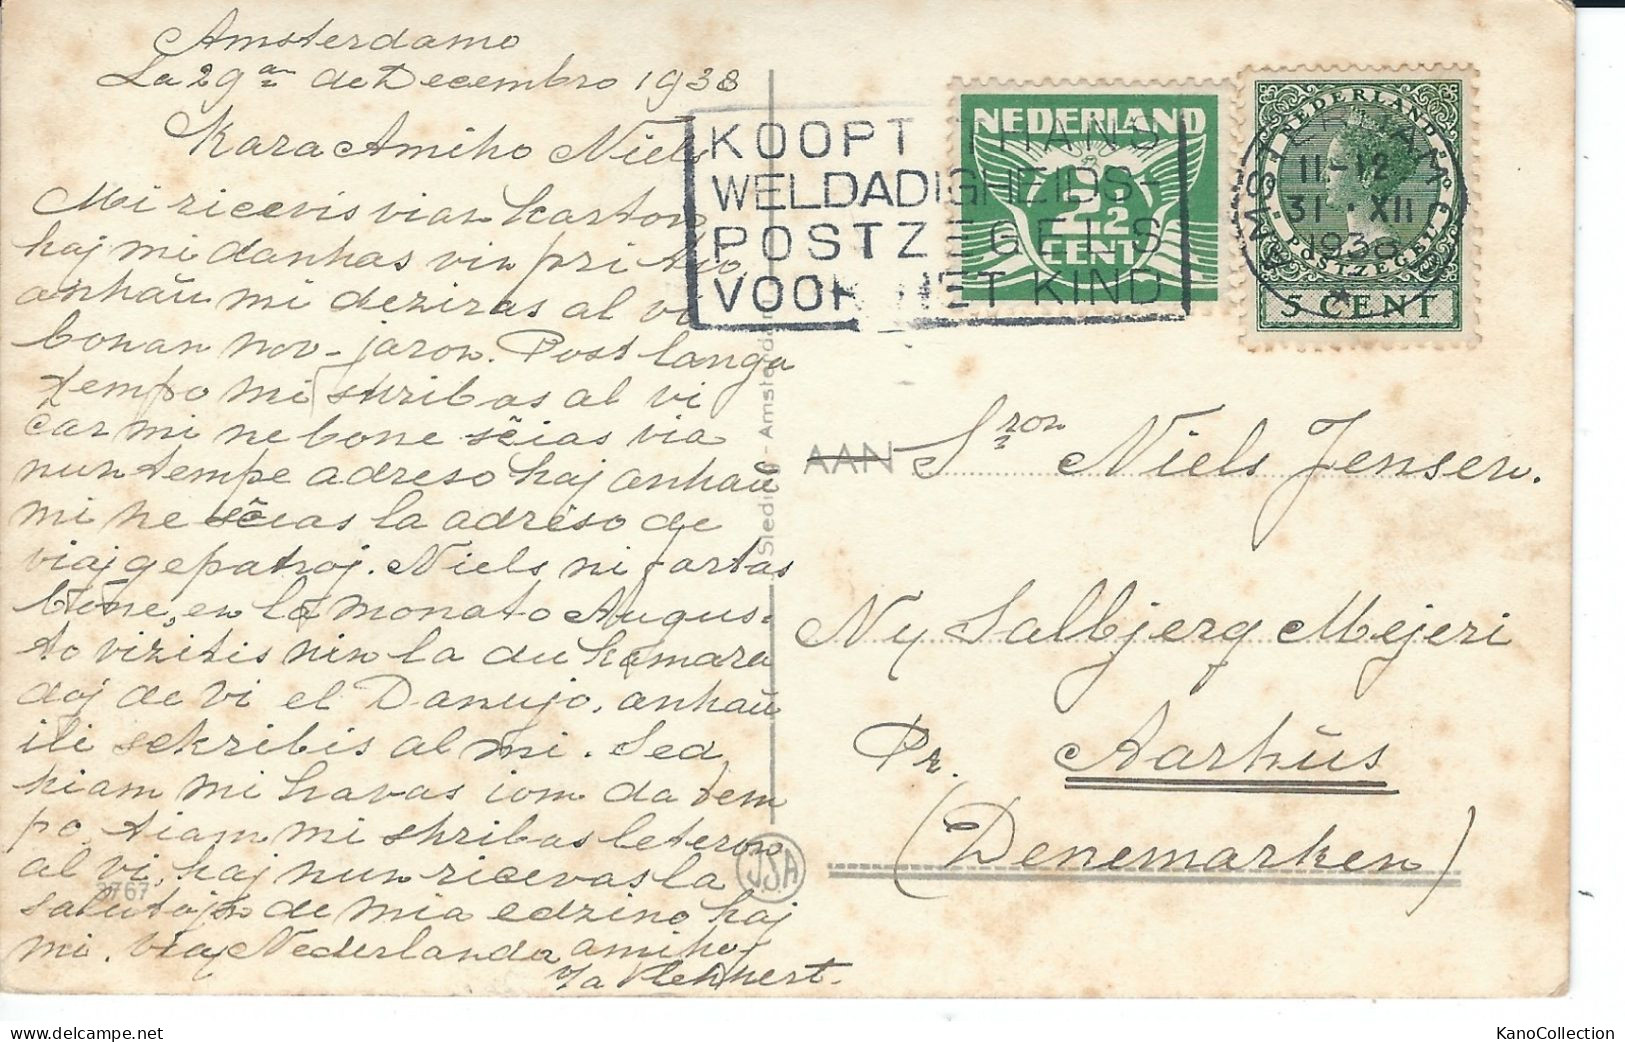 Amsterdamo
La 29an de Decembro 1938
Kara Amiko Niels
Mi ricevis vian karton
kaj mi dankas vin pri tio,
ankaŭ mi deziras al vi
bonan nov-jaron. Post longa
tempo mi skribas al vi
ĉar mi ne bone sĉias via
nuntempe adreso kaj ankaŭ
mi ne sĉias la adreso de
viaj gepatroj. Niels ni fartas
bone, en la monato Augus-
to vizitis nin la du kamara
doj de vi el Danujo, ankaŭ
ili sekribis al mi. Sed
kiam mi havas iom da tem
po, tiam mi skribas leteron
al vi, kaj nun ricevas la
salutojn de mia edzino kaj
mi. Viaj Nederlanda amikoj
KOOPT THANS
WELDADIGHEIDS-
POSTZEGELS
VOOR HET KIND
NEDERLAND
2½
CENT
NEDERLAND
POSTZEGEL
5 CENT
AMSTERDAM C.S.
11-12
31 XII
1938
AAN Sron Niels Jensen.
Ny Salbjerg Mejeri
Pr. Aarhûs
(Denemarken)
JSA
3767
KanoCollection
www.delcampe.net